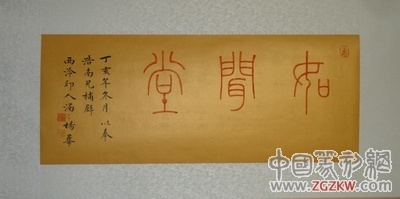 如聞堂
丁亥年冬月以奉
浩南兄補壁
西泠印人
中国篆刻網
www.ZGZKW.com